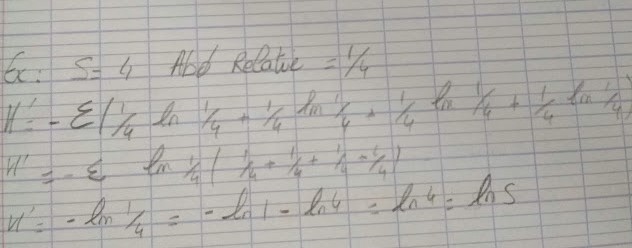 Ex: S = 4 Abd Relative = 1/4
H' = - Σ(1/4 ln 1/4 + 1/4 ln 1/4 + 1/4 ln 1/4 + 1/4 ln 1/4)
H' = - Σ ln 1/4 ( 1/4 + 1/4 + 1/4 + 1/4)
H' = - ln 1/4 = - ln 1 - ln 4 = ln 4 = ln S